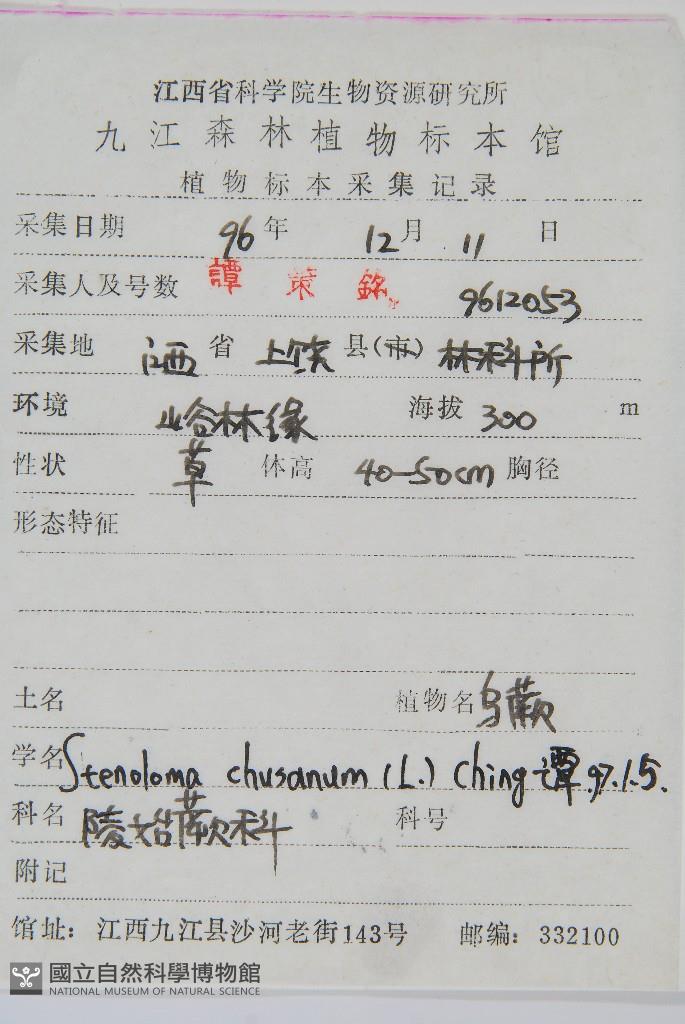 江西省科学院生物资源研究所
九江森林植物标本馆
植物标本采集记录
采集日期 96年 12月 11日
采集人及号数 譚策銘 9612053
采集地 江西省 上饶县(市) 林科所
环境 山谷林缘 海拔 300 m
性状 草 体高 40-50cm 胸径
形态特征
土名 植物名 乌蕨
学名 Stenoloma chusanum (L.) Ching 谭.97.1.5.
科名 陵始蕨科 科号
附记
馆址：江西九江县沙河老街143号 邮编：332100
國立自然科學博物館
NATIONAL MUSEUM OF NATURAL SCIENCE